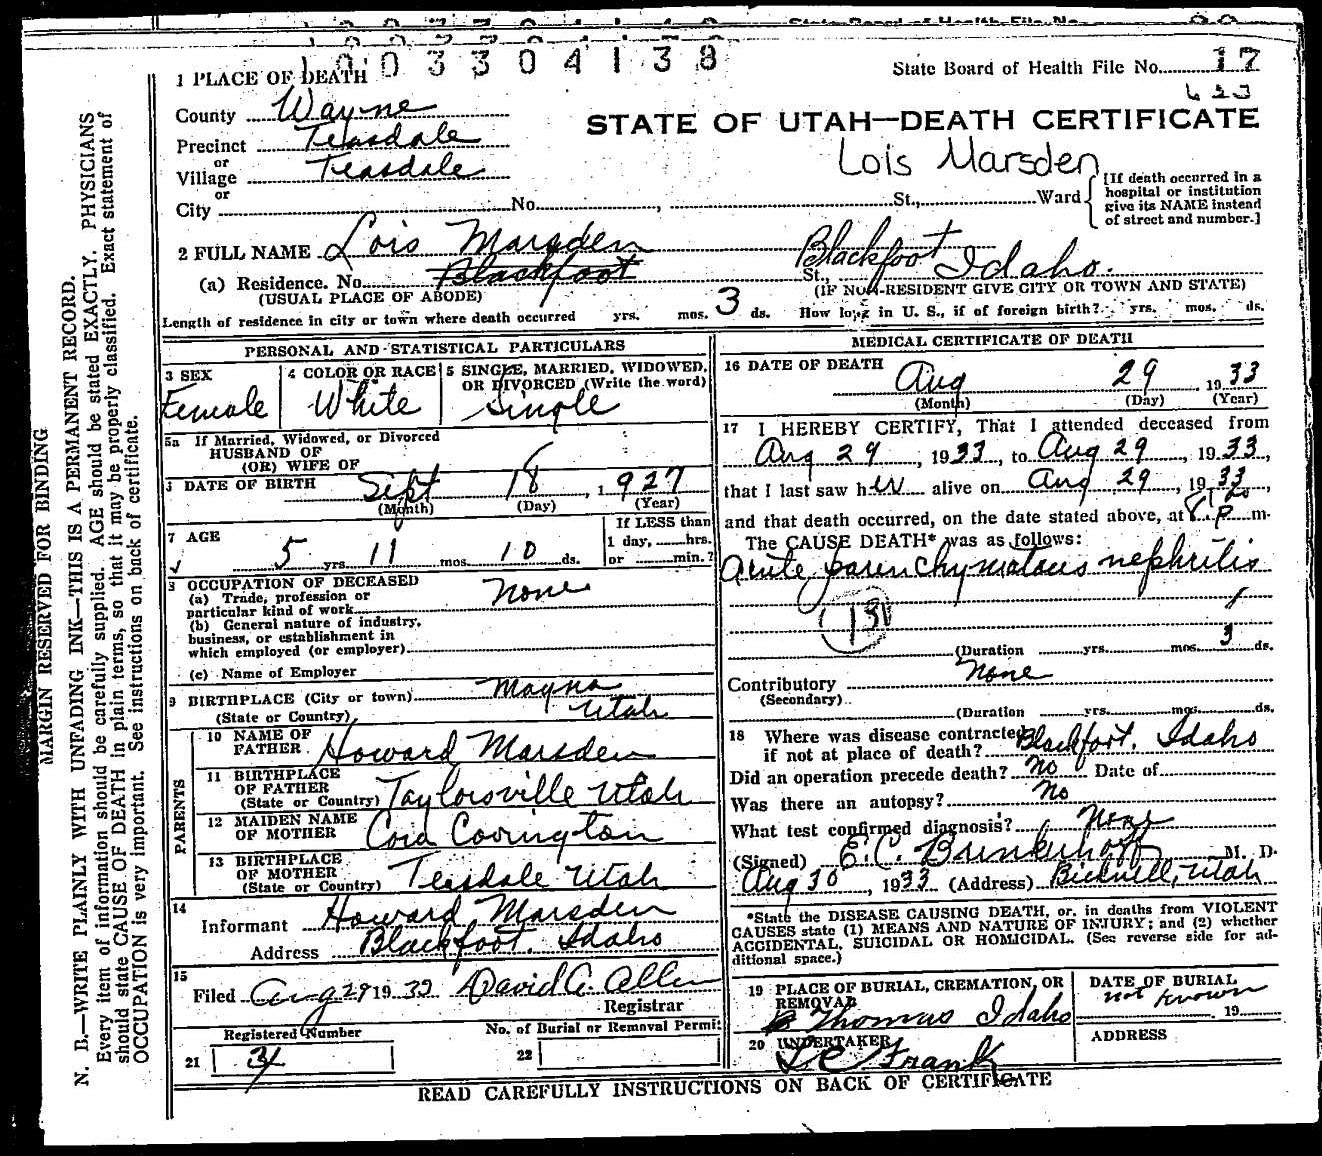 1 PLACE OF DEATH
100330 4138
State Board of Health File No. 17
County Wayne
STATE OF UTAH—DEATH CERTIFICATE
Precinct Teasdale
or
Village Teasdale
or
City No. , St., Ward
Lois Marsden
[If death occurred in a
hospital or institution
give its NAME instead
of street and number.]
2 FULL NAME Lois Marsden
(a) Residence. No. Blackfoot St., Blackfoot Idaho.
(USUAL PLACE OF ABODE) (IF NON-RESIDENT GIVE CITY OR TOWN AND STATE)
Length of residence in city or town where death occurred yrs. mos. 3 ds. How long in U. S., if of foreign birth? yrs. mos. ds.
PERSONAL AND STATISTICAL PARTICULARS
3 SEX
Female
4 COLOR OR RACE
White
5 SINGLE, MARRIED, WIDOWED,
OR DIVORCED (Write the word)
Single
5a If Married, Widowed, or Divorced
HUSBAND OF
(OR) WIFE OF
DATE OF BIRTH Sept 18, 1927
(Month) (Day) (Year)
7 AGE
5 yrs. 11 mos. 10 ds.
If LESS than
1 day, hrs.
or min.?
8 OCCUPATION OF DECEASED
(a) Trade, profession or
particular kind of work None
(b) General nature of industry,
business, or establishment in
which employed (or employer)
(c) Name of Employer
9 BIRTHPLACE (City or town)
(State or Country) Utah
PARENTS
10 NAME OF
FATHER Howard Marsden
11 BIRTHPLACE
OF FATHER
(State or Country) Taylorsville Utah
12 MAIDEN NAME
OF MOTHER Cora Covington
13 BIRTHPLACE
OF MOTHER
(State or Country) Teasdale Utah
14
Informant Howard Marsden
Address Blackfoot, Idaho
15
Filed Aug 29 19 David C. Allen
Registrar
Registered Number
21
No. of Burial or Removal Permit
22
MEDICAL CERTIFICATE OF DEATH
16 DATE OF DEATH
Aug 29, 1933
(Month) (Day) (Year)
17 I HEREBY CERTIFY, That I attended deceased from
Aug 29, 1933, to Aug 29, 1933,
that I last saw her alive on Aug 29, 1933,
and that death occurred, on the date stated above, at P. m.
The CAUSE DEATH* was as follows:
Acute parenchymatous nephritis
131
(Duration yrs. mos. 3 ds.
Contributory None
(Secondary)
(Duration yrs. mos. ds.
18 Where was disease contracted
if not at place of death? Blackfoot, Idaho
Did an operation precede death? No Date of
Was there an autopsy? No
What test confirmed diagnosis? None
(Signed) E. C. Brinkerhoff M. D.
Aug 30, 1933 (Address) Bicknell, Utah
*State the DISEASE CAUSING DEATH, or, in deaths from VIOLENT
CAUSES state (1) MEANS AND NATURE OF INJURY; and (2) whether
ACCIDENTAL, SUICIDAL OR HOMICIDAL. (See reverse side for ad-
ditional space.)
19 PLACE OF BURIAL, CREMATION, OR
REMOVAL
Thomas Idaho
DATE OF BURIAL
not known
19
20 UNDERTAKER
Frank
ADDRESS
READ CAREFULLY INSTRUCTIONS ON BACK OF CERTIFICATE
MARGIN RESERVED FOR BINDING
N. B.—WRITE PLAINLY WITH UNFADING INK—THIS IS A PERMANENT RECORD.
Every item of information should be carefully supplied. AGE should be stated EXACTLY. PHYSICIANS
should state CAUSE OF DEATH in plain terms, so that it may be properly classified. Exact statement of
OCCUPATION is very important. See instructions on back of certificate.